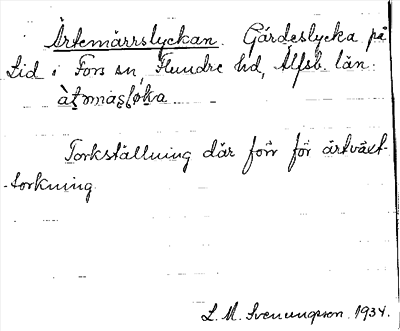 Ärtemärrslyckan. Gärdeslycka på
Lid i Fors sn, Flundre hd, Älfsb. län.
Torkställning där förr för ärtväxt-
torkning
L. M. Svenungsson 1934.